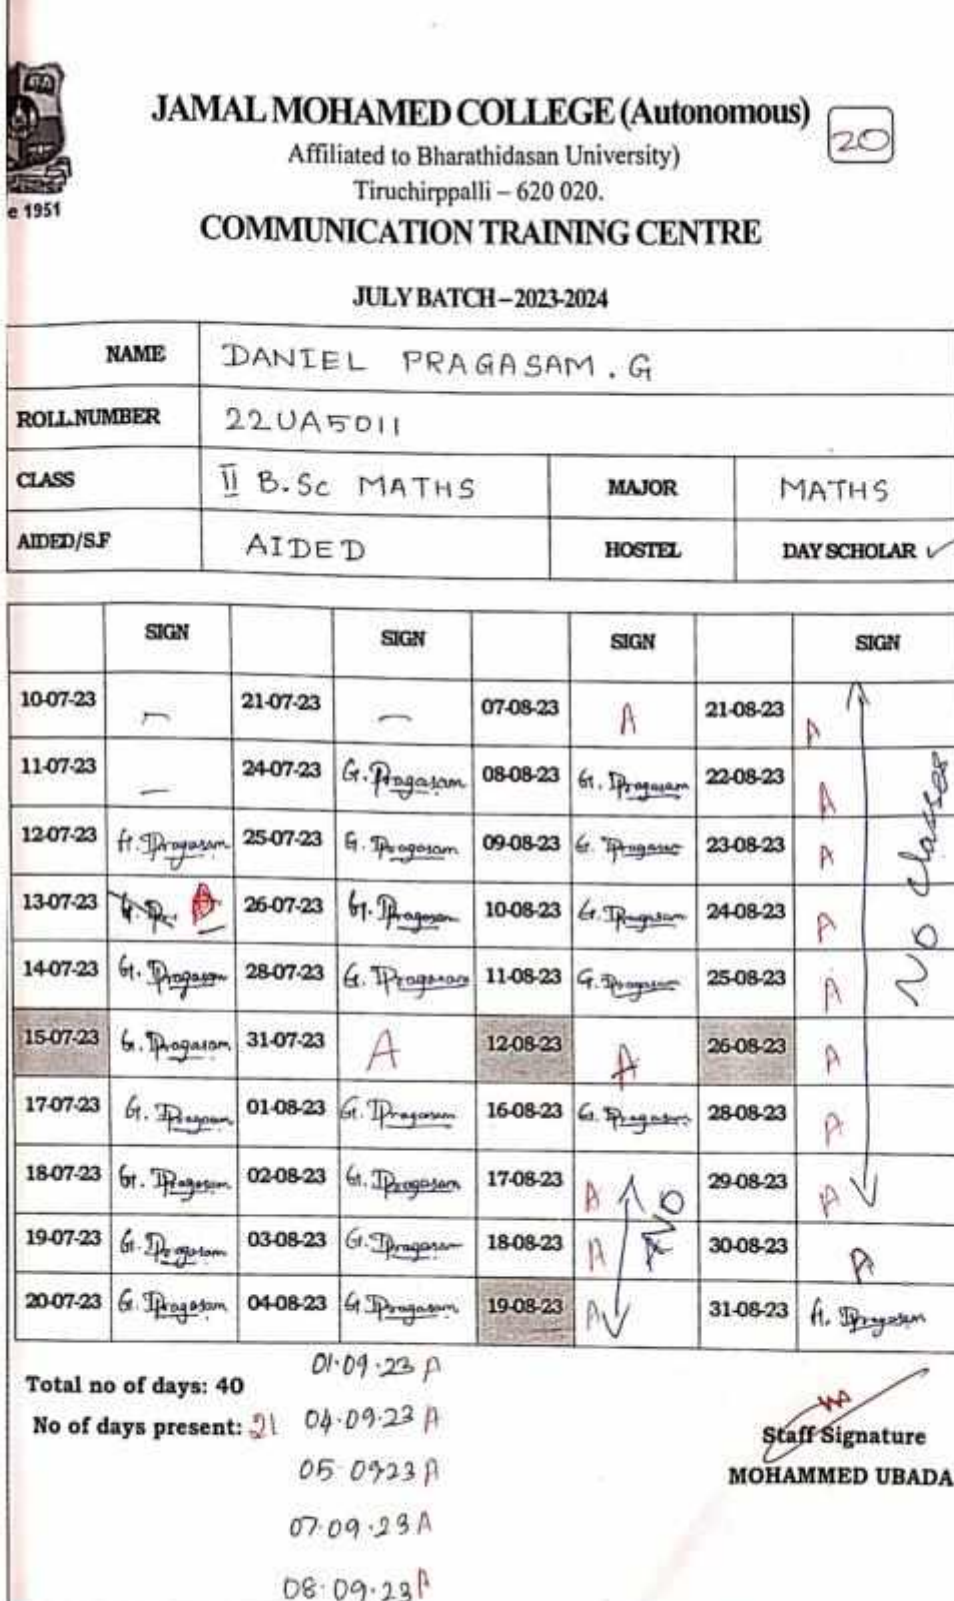 JAMAL MOHAMED COLLEGE (Autonomous)
20
Affiliated to Bharathidasan University)
Tiruchirppalli – 620 020.
e 1951
COMMUNICATION TRAINING CENTRE
JULY BATCH – 2023-2024
NAME DANIEL PRAGASAM . G
ROLL.NUMBER 22UA5011
CLASS II B.Sc MATHS MAJOR MATHS
AIDED/S.F AIDED HOSTEL DAY SCHOLAR ✓
SIGN SIGN SIGN SIGN
10-07-23 – 21-07-23 – 07-08-23 A 21-08-23 A
11-07-23 – 24-07-23 G. Pragasam 08-08-23 G. Pragasam 22-08-23 A
12-07-23 G. Pragasam 25-07-23 G. Pragasam 09-08-23 G. Pragasam 23-08-23 A
13-07-23 A 26-07-23 G. Pragasam 10-08-23 G. Pragasam 24-08-23 A
14-07-23 G. Pragasam 28-07-23 G. Pragasam 11-08-23 G. Pragasam 25-08-23 A
15-07-23 G. Pragasam 31-07-23 A 12-08-23 A 26-08-23 A
17-07-23 G. Pragasam 01-08-23 G. Pragasam 16-08-23 G. Pragasam 28-08-23 A
18-07-23 G. Pragasam 02-08-23 G. Pragasam 17-08-23 A 29-08-23 A
19-07-23 G. Pragasam 03-08-23 G. Pragasam 18-08-23 A 30-08-23 A
20-07-23 G. Pragasam 04-08-23 G. Pragasam 19-08-23 A 31-08-23 G. Pragasam
NO
No classes
01.09.23 A
Total no of days: 40
No of days present: 21
04.09.23 A
Staff Signature
05 0923 A
MOHAMMED UBADA
07.09.23 A
08.09.23 A